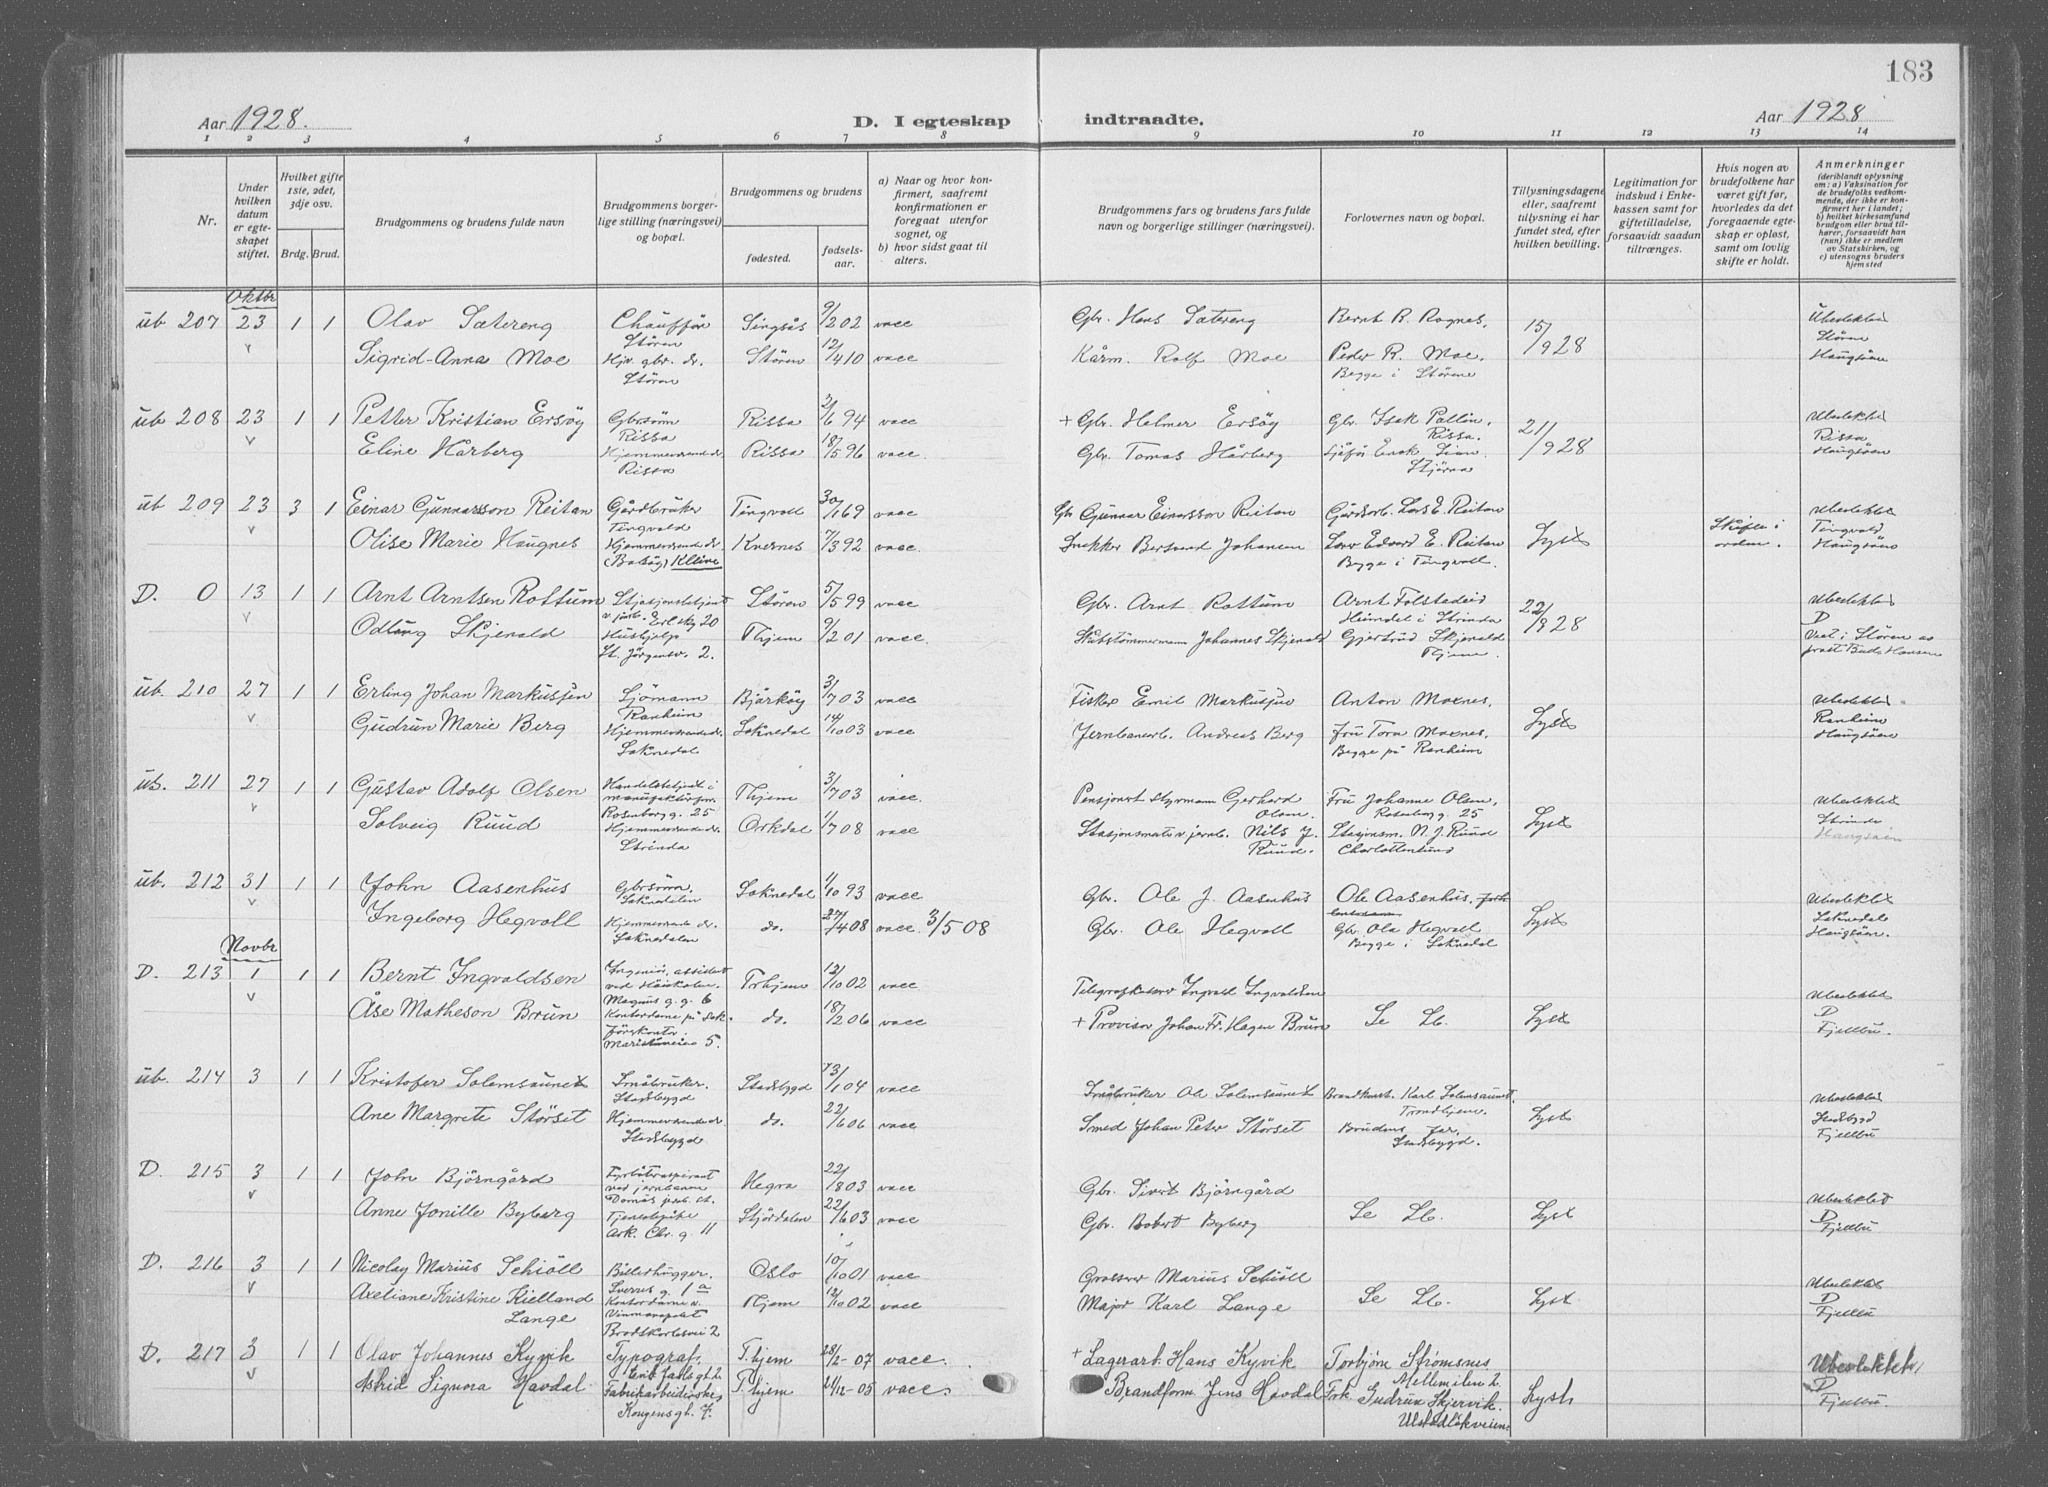 183
Aar 1928.
D. I egteskap
indtraadte.
Aar 1928
1 2 3 4 5 6 7 8 9 10 11 12 13 14
Nr.
Under hvilken datum er egteskapet stiftet.
Hvilket gifte 1ste, 2det, 3dje osv.
Brdg. Brud.
Brudgommens og brudens fulde navn
Brudgommens borgerlige stilling (næringsvei) og bopæl.
Brudgommens og brudens
fødested.
fødselsaar.
a) Naar og hvor konfirmert, saafremt konfirmationen er foregaat utenfor sognet, og
b) hvor sidst gaat til alters.
Brudgommens fars og brudens fars fulde navn og borgerlige stillinger (næringsvei).
Forlovernes navn og bopæl.
Tillysningsdagene eller, saafremt tillysning ei har fundet sted, efter hvilken bevilling.
Legitimation for indskud i Enkekassen samt for giftetilladelse, forsaavidt saadan tiltrænges.
Hvis nogen av brudefolkene har været gift før, hvorledes da det foregaaende egteskap er opløst, samt om lovlig skifte er holdt.
Anmerkninger (deriblandt oplysning om: a) Vaksination for de brudefolks vedkommende, der ikke er konfirmert her i landet; b) hvilket kirkesamfund brudgom eller brud tilhører, forsaavidt han (hun) ikke er medlem av Statskirken, og c) utensogns bruders hjemsted
Oktbr
ub 207 23 1 1 Olav Sætereng Chauffør Støren Singsås 9/2 02 vacc Gbr. Hans Sætereng Bernt R. Rognes, 15/9 28 Ubeslektet Støren Haugsåen
Sigrid-Anna Moe Hjv. gbr. dr. Støren Støren 12/4 10 vacc Kårm. Rolf Moe Peder R. Moe, Begge i Støren
ub 208 23 1 1 Petter Kristian Ersøy Gbrsønn Rissa Rissa 2/6 94 vacc + Gbr. Helmer Ersøy Gbr. Isak Pallin, Rissa. 21/9 28 Ubeslektet Rissa Haugsåen
Eline Hårberg Hjemmeværende dr. Rissa Rissa 18/5 96 vacc. Gbr. Tomas Hårberg
ub 209 23 3 1 Einar Gunnarsson Reitan Gårdbruker Tingvold Tingvoll 30/1 69 vacc Gb Gunnar Einarsson Reitan Gårdsarb. Lars E. Reitan Lyst Skifte i orden. Ubeslektet Tingvold Haugsåen
Olise Marie Haugnes Hjemmeværende dr. Kvernes 7/3 92 vacc. Snekker Bersvend Johansen Edvard E. Reitan Begge i Tingvoll.
D. 0 13 1 1 Arnt Arntsen Rottum Støren 5/5 99 vacc Gbr. Arnt Rottum Arnt Folstadeid Heimdal i Strinda 22/9 28 Ubeslektet D Viet i Støren av prost Buds Hansen
Odlaug Skjervald Hushjelp St. Jørgensv. 2. Thjem 9/2 01 vacc. Johannes Skjervald Gjertrud Skjervald Thjem.
ub. 210 27 1 1 Erling Johan Markussen Sjømann Ranheim Bjarkøy 3/7 03 vacc Fisker Emil Markussen Anton Moxnes, Lyst Ubeslektet Ranheim Haugsåen
Gudrun Marie Berg Hjemmeværende dr. Soknedal Soknedal 14/10 03 vacc Jernbanearb. Andreas Berg Fru Tora Moxnes, Begge på Ranheim
ub. 211 27 1 1 Gustav Adolf Olsen Handelsbetjent i manufakturforr. Rosenborg g. 25 Thjem 3/7 03 vacc. Pensjonert styrmann Gerhard Olsen Fru Johanne Olsen, Rosenborg g. 25 Lyst Ubeslektet Strinda Haugsåen
Solveig Ruud Hjemmeværende dr. Strinda Orkdal 1/7 08 vacc Stasjonsmester v. jernb. Nils J. Ruud. Stasjonsm. N. J. Ruud Charlottenlund
ub. 212 31 1 1 John Aasenhus Gbrsønn. Soknedalen Soknedal 1/10 93 vacc Gbr. Ole J. Aasenhus Ole Aasenhus, Lyst Ubeslektet Soknedalen Haugsåen.
Ingeborg Hegvoll Hjemmeværende dr. Soknedalen do. 27/4 08 vacc. 3/5 08 Gbr. Ole Hegvoll Gbr. Ola Hegvoll Begge i Soknedal
Novbr
D. 213 1 1 1 Bernt Ingvaldsen Ingeniør, assistent ved Høiskolen. Magnus g. g. 6 Trhjem 12/10 02 vacc Ingvald Ingvaldsen Se Lb. Lyst Ubeslektet D Fjellbu.
Åse Matheson Brun Kontordame på Sakførerkontor. 5. do. 18/2 06 vacc + Provisor Johan Fr. Hagen Brun
ub. 214 3 1 1 Kristofer Solemsaunet Småbruker. Stadsbygd Stadsbygd 13/1 04 vacc Småbruker Ole Solemsaunet Brandkonst. Karl Solemsaunet, Trondhjem. Lyst Ubeslektet Stadsbygd Fjellbu
Ane Margrete Størset Hjemmeværende dr. Stadsbygd do. 22/6 06 vacc Smed Johan Peter Størset Brudens far, Stadsbygd.
D. 215 3 1 1 John Bjørngård Fyrbøteraspirant ved jernbanen Hegra 22/8 03 vacc Gbr. Sivert Bjørngård Se Lb. Lyst Ubeslektet D Fjellbu
Anne Jonille Byberg Tjenestepike Ark. Chr. g. 11 Stjørdalen 22/6 03 vacc Gbr. Robert Byberg
D. 216 3 1 1 Nicolay Marius Schiøll Billedhugger. Sverres g. 1 a Oslo 10/10 01 vacc Gravør Marius Schiøll Se Lb. Lyst Ubeslektet D Fjellbu
Axeliane Kristine Kielland Lange Kontordame v. Vinmonopolet 2 Thjem 12/10 02 vacc Major Karl Lange
D. 217 3 1 1 Olav Johannes Kyvik Typograf, Erik Jarls gt. 2 T.hjem 28/2-07 vacc. + Lagerarb. Hans Kyvik Torbjørn Strømsnes Mellemilen 2. Lyst Ubeslektet D Fjellbu.
Astrid Signora Havdal Fabrikarbeiderske, Kongensgt. 7. T.hjem 21/12-05 vacc. Brandform. Jens Havdal Frk. Gudrun Skjervik.